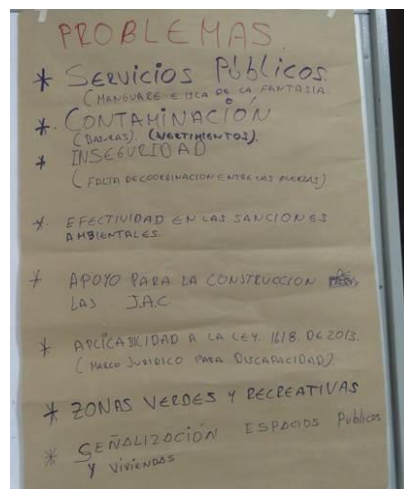 PROBLEMAS
* SERVICIOS PÚBLICOS.
(MANGUARE E ISLA DE LA FANTASIA
* CONTAMINACIÓN
(BASURAS). (VERTIMIENTOS).
* INSEGURIDAD
(FALTA DE COORDINACION ENTRE LAS FUERZAS)
* EFECTIVIDAD EN LAS SANCIONES
AMBIENTALES.
* APOYO PARA LA CONSTRUCCION
LAS J.A.C
* APLICABILIDAD A LA LEY. 1618. DE 2013.
(MARCO JURIDICO PARA DISCAPACIDAD).
* ZONAS VERDES Y RECREATIVAS
* SEÑALIZACIÓN ESPACIOS PUBLICOS
Y VIVIENDAS